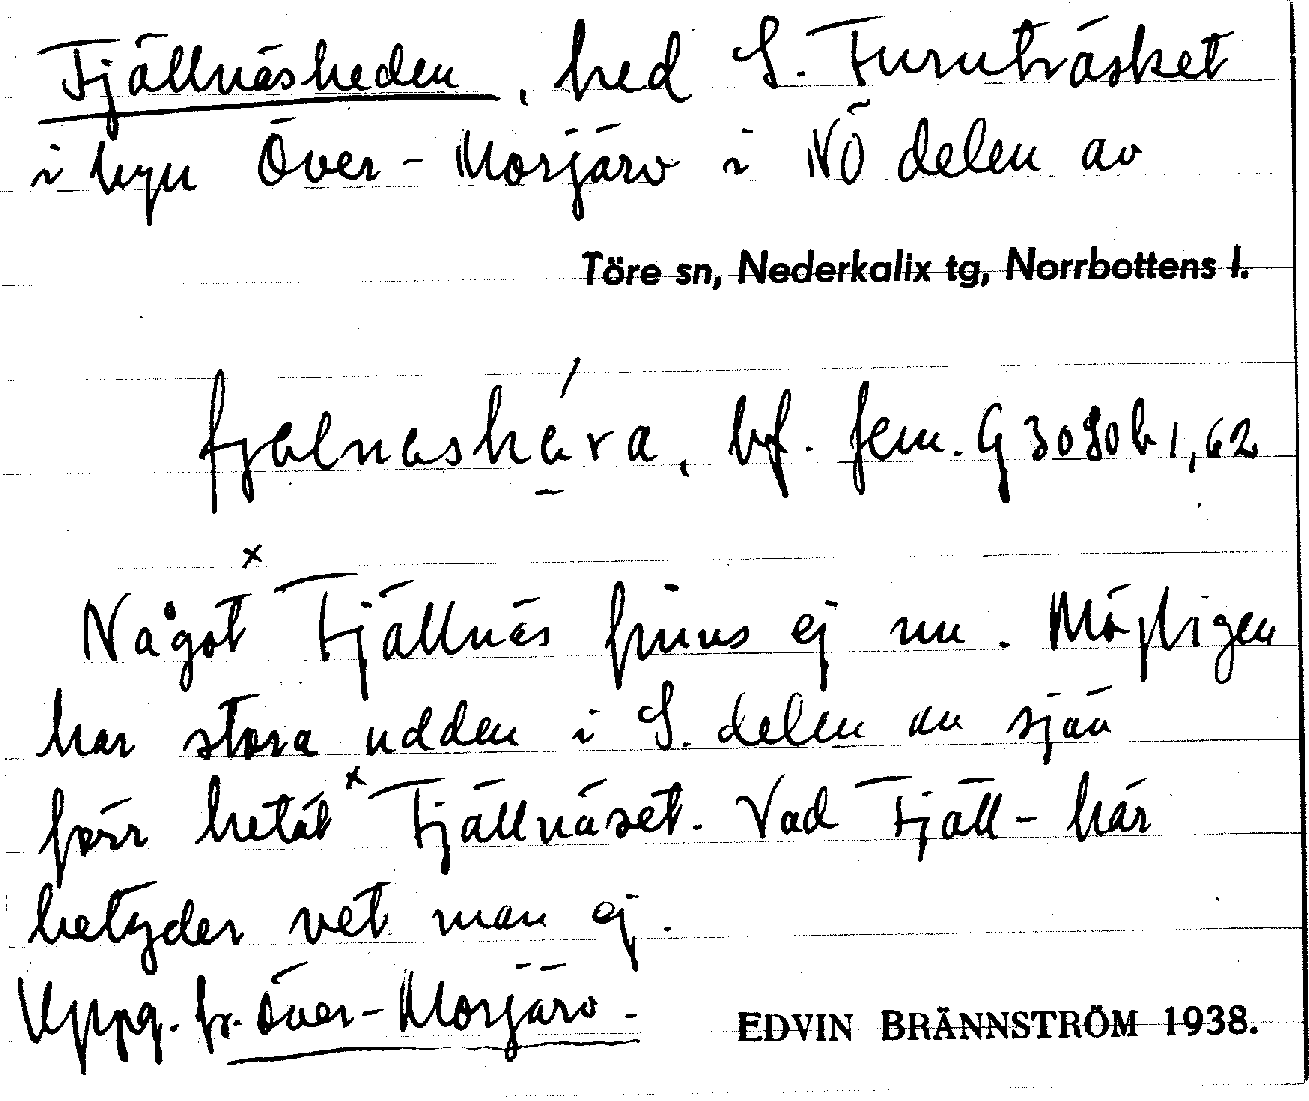 Fjällnäsheden, hed S. Furuträsket
i byn Över-Morjärv i NÖ delen av
Töre sn, Nederkalix tg, Norrbottens l.
bf. fem. G 3080 b 1, 62
Något x Fjällnäs finns ej nu. Möjligen
har stora udden i S. delen av sjön
förr hetat x Fjällnäset. Vad Fjäll- här
betyder vet man ej.
Uppg. fr. Över-Morjärv.
EDVIN BRÄNNSTRÖM 1938.